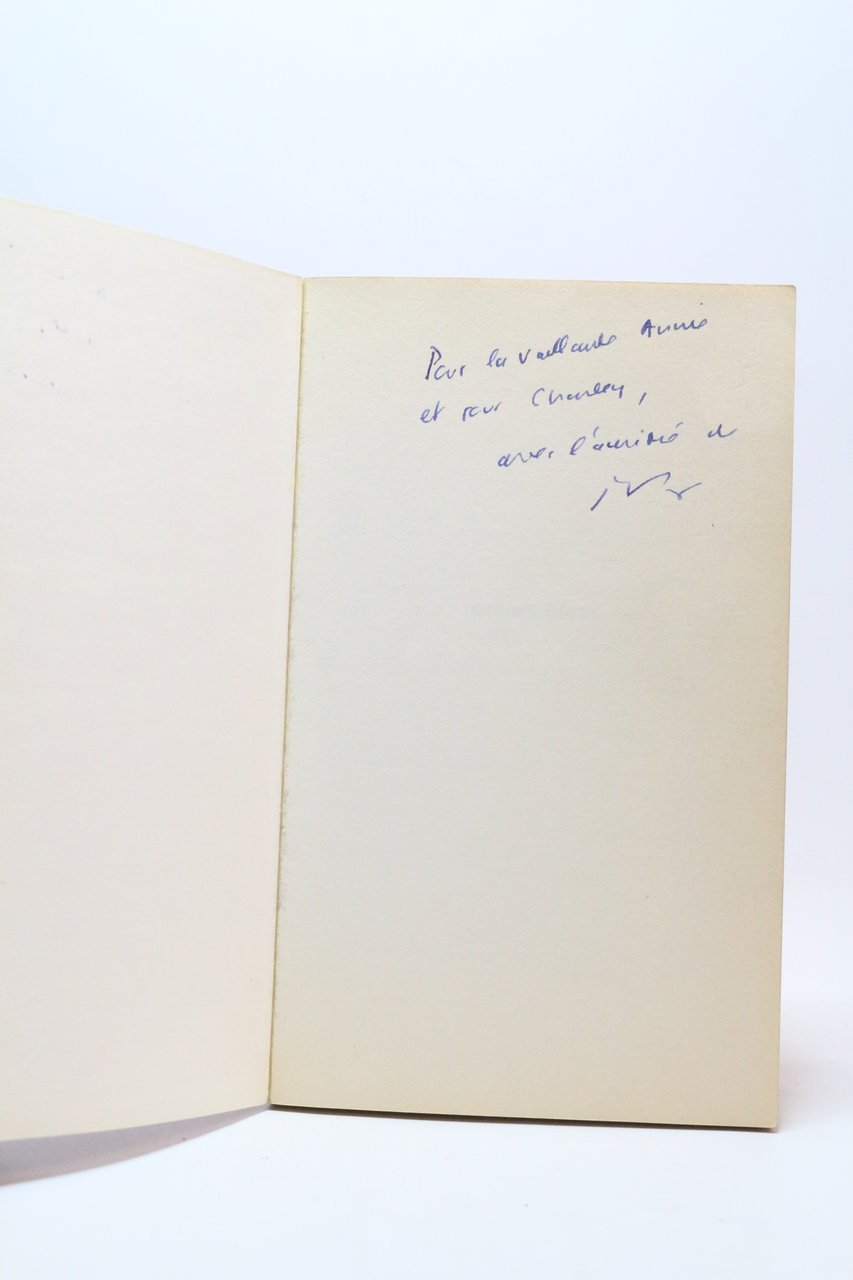 Pour la vaillante Annie
et pour Charley,
avec l'amitié de